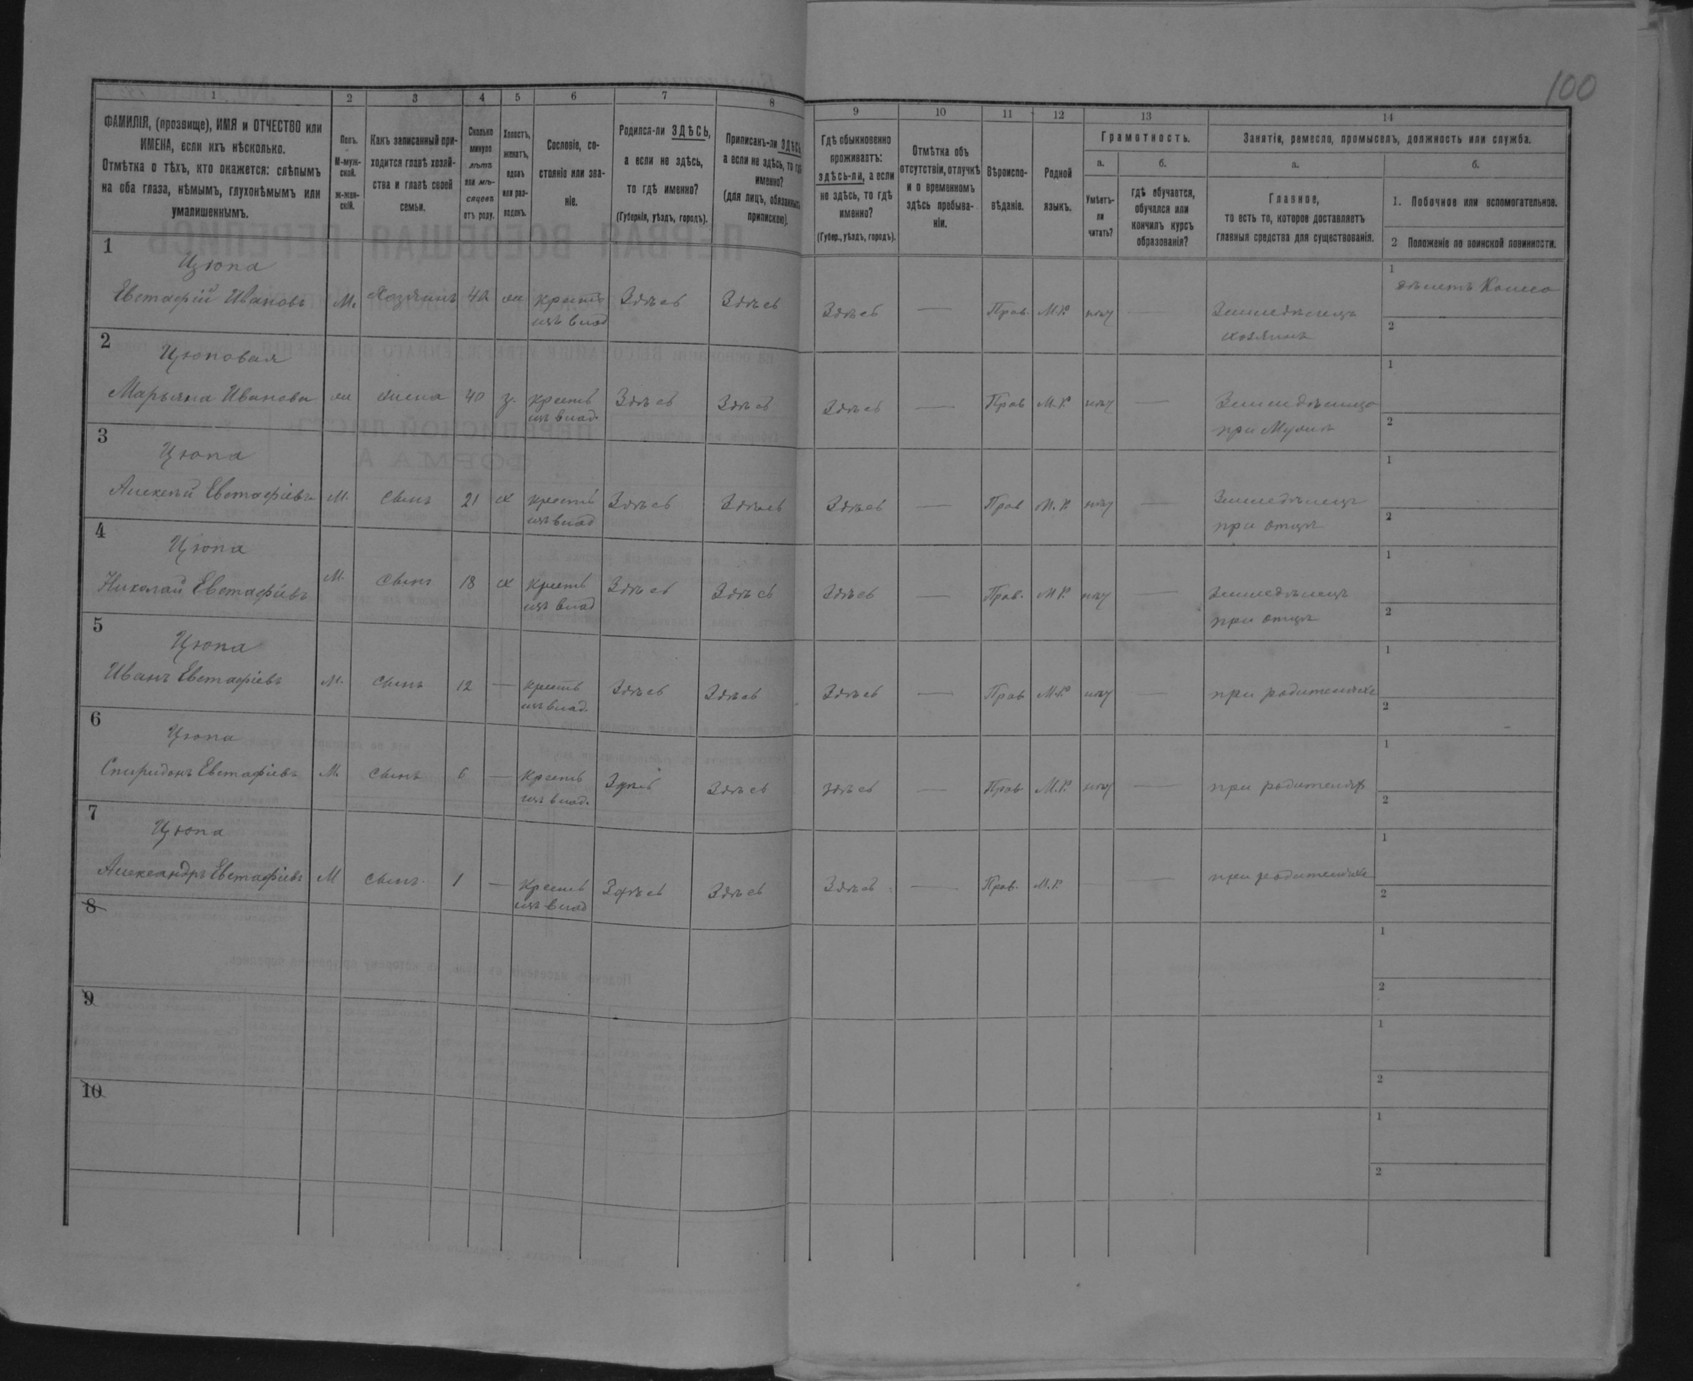 100
1 2 3 4 5 6 7 8 9 10 11 12 13 14
ФАМИЛІЯ, (прозвище), ИМЯ и ОТЧЕСТВО или
ИМЕНА, если ихъ нѣсколько.
Отмѣтка о тѣхъ, кто окажется: слѣпымъ
на оба глаза, нѣмымъ, глухонѣмымъ или
умалишеннымъ.
Полъ.
М-муж-
ской.
ж-жен-
скій.
Какъ записанный при-
ходится главѣ хозяй-
ства и главѣ своей
семьи.
Сколько
минуло
лѣтъ
или мѣ-
сяцевъ
отъ роду.
Холостъ,
женатъ,
вдовъ
или раз-
веденъ.
Сословіе, со-
стояніе или зва-
ніе.
Родился-ли ЗДѢСЬ,
а если не здѣсь,
то гдѣ именно?
(Губернія, уѣздъ, городъ).
Приписанъ-ли ЗДѢСЬ,
а если не здѣсь, то гдѣ
именно?
(для лицъ, обязанныхъ
припискою).
Гдѣ обыкновенно
проживаетъ:
здѣсь-ли, а если
не здѣсь, то гдѣ
именно?
(Губер., уѣздъ, городъ).
Отмѣтка объ
отсутствіи, отлучкѣ
и о временномъ
здѣсь пребыва-
ніи.
Вѣроиспо-
вѣданіе.
Родной
языкъ.
Грамотность.
а. б.
Умѣетъ-
ли
читать?
гдѣ обучается,
обучался или
кончилъ курсъ
образованія?
Занятія, ремесло, промыселъ, должность или служба.
а. б.
Главное,
то есть то, которое доставляетъ
главныя средства для существованія.
1. Побочное или вспомогательное.
2 Положеніе по воинской повинности.
1
Цюпа
Евстафій Ивановъ М. Хозяинъ крестъ Здѣсь Здѣсь Здѣсь — Прав. М.Р. нѣт — Земледѣлецъ
изъ влад хозяинъ
1
2
2
Цюповая
Марьяна Иванова жена 40 з. крестъ Здѣсь Здѣсь Здѣсь — Прав М.Р нѣт — 
изъ влад. при Мужѣ
1
2
3
Цюпа
Алексѣй Евстафіевъ М. сынъ 21 х крестъ Здѣсь Здѣсь Здѣсь — Прав М.Р нѣт — Земледѣлецъ
изъ влад при отцѣ
1
2
4
Цюпа
Николай Евстафіевъ М. сынъ 18 х крестъ Здѣсь Здѣсь Здѣсь — Прав. М.Р. нѣт — Земледѣлецъ
изъ влад при отцѣ
1
2
5
Цюпа
Иванъ Евстафіевъ М. сынъ 12 — крестъ Здѣсь Здѣсь Здѣсь — Прав М.Р нѣт — при родителяхъ
изъ влад.
1
2
6
Цюпа
Спиридонъ Евстафіевъ М. сынъ 6 — крестъ Здѣсь Здѣсь Здѣсь — Прав М.Р. нѣт — при родителях
изъ влад.
1
2
7
Цюпа
Александръ Евстафіевъ М сынъ 1 — крестъ Здѣсь Здѣсь Здѣсь — Прав. М.Р. — — при родителяхъ
изъ влад
1
2
8
1
2
9
1
2
10
1
2